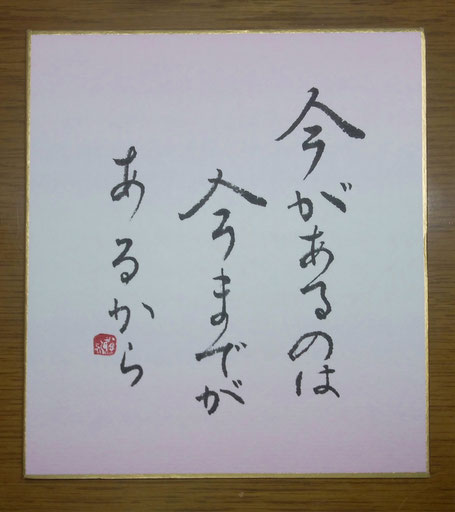 今があるのは
今までが
あるから